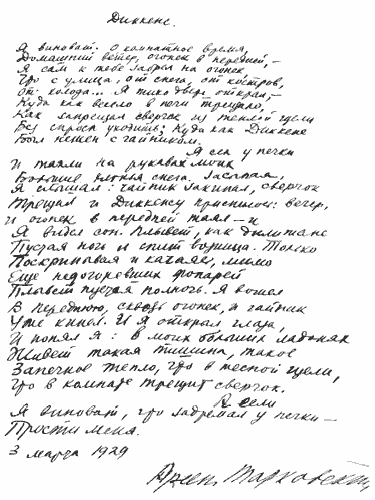 Диккенс.
Я виноват. О комнатное время,
Домашний ветер, огонек в передней, —
Я сам к тебе забрел на огонек
Что с улицы, от снега, от костров,
От холода... Я тихо дверь открыл, —
Куда как весело в печи трещало,
Как запрещал сверчок из теплой щели
Без спроса уходить; Куда как Диккенс
Был нежен с чайником.
Я сел у печки
И таяли на рукавах моих
Большие хлопья снега. Засыпая,
Я слышал: чайник закипал, сверчок
Трещал и Диккенсу приснился: вечер,
И огонек в передней таял — и
Я видел сон. Плывет, как дилижанс
Пустая ночь и спит возница. Только
Поскрипывая и качаясь, мимо
Еще недогоревших фонарей
Плывет пустая полночь. Я вошел
В переднюю, сквозь огонек, и чайник
Уже кипел. И я открыл глаза,
И понял я: в моих больших ладонях
Живет такая тишина, такое
Запечное тепло, что в тесной щели,
Что в комнате трещит сверчок.
А если
Я виноват, что задремал у печки —
Прости меня.
3 марта 1929
Арсен. Тарковский